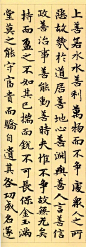 上善若水水善利萬物而不爭處衆人之所
惡故幾於道居善地心善淵與善人言善信
政善治事善能動善時夫惟不爭故無尤矣
持而盈之不如其已揣而銳之不可長保金玉滿
堂莫之能守富貴而驕自遺其咎功成名遂